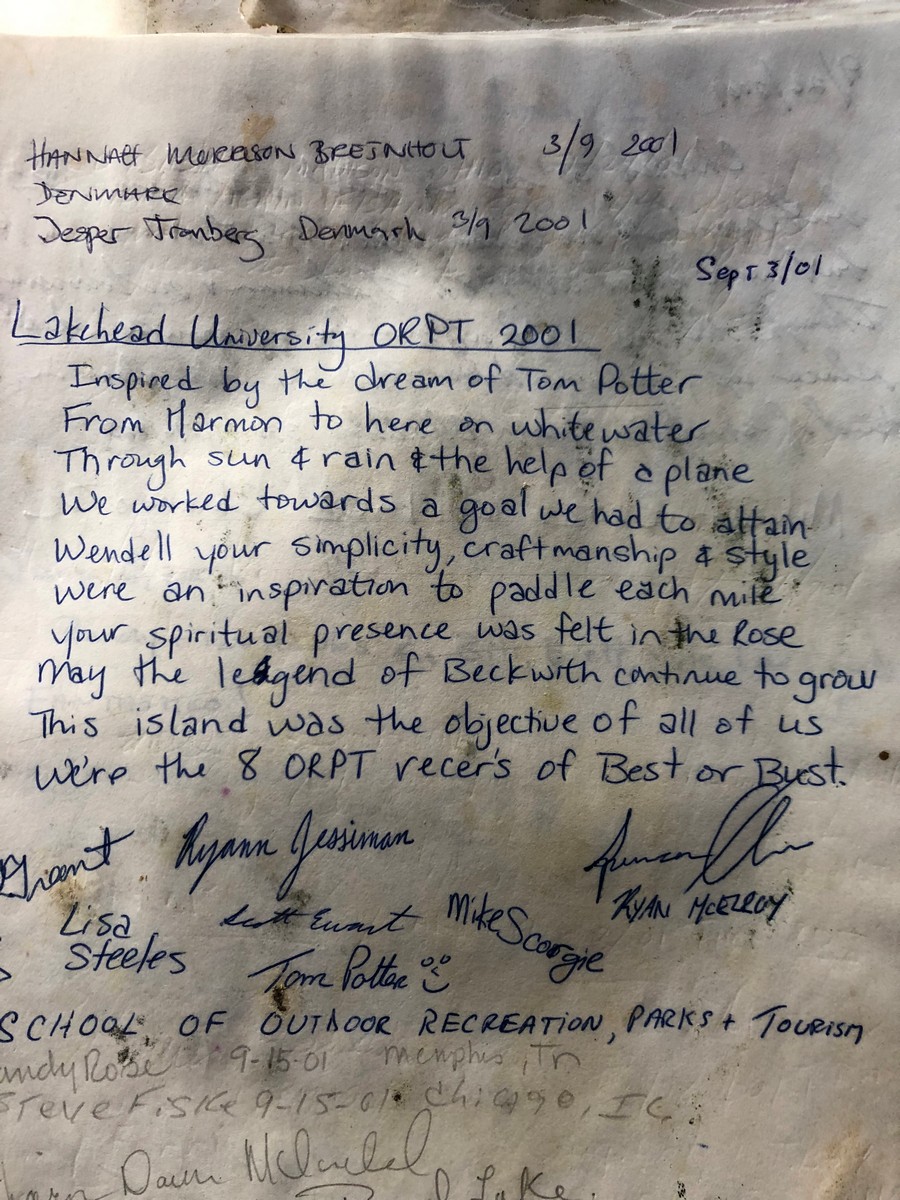 HANNAH MORRISON BREINHOLT 3/9 2001
DENMARK
Jesper Tranberg Denmark 3/9 2001
Sept 3/01
Lakehead University ORPT 2001
Inspired by the dream of Tom Potter
From Harmon to here on whitewater
Through sun & rain & the help of a plane
We worked towards a goal we had to attain
Wendell your simplicity, craftmanship & style
were an inspiration to paddle each mile
your spiritual presence was felt in the Rose
May the legend of Beckwith continue to grow
This island was the objective of all of us
We're the 8 ORPT recer's of Best or Bust.
Grant Ryann Jessiman
RYAN McELROY
Lisa Steeles Scott Ewart Mike Scorgie
Tom Potter
SCHOOL OF OUTDOOR RECREATION, PARKS + TOURISM
andy Rose 9-15-01 Memphis, Tn
Steve Fiske 9-15-01 Chicago, IL
Dawn
Lake.